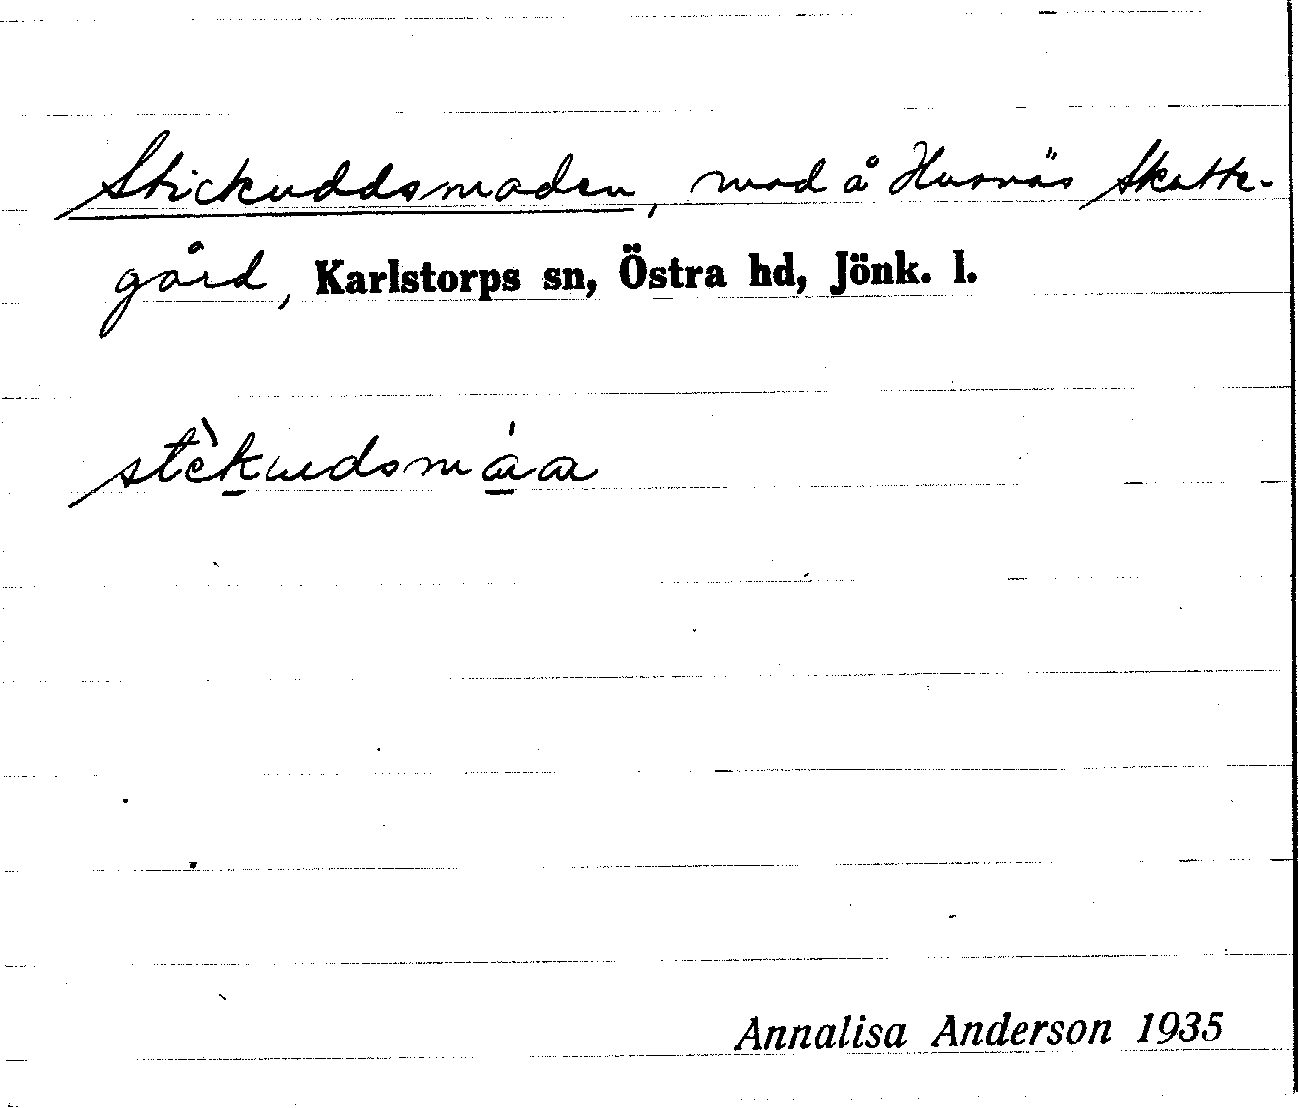 Stickuddsmaden, mad å Husnäs Skatte-
gård, Karlstorps sn, Östra hd, Jönk. l.
stèkudsmáa
Annalisa Anderson 1935